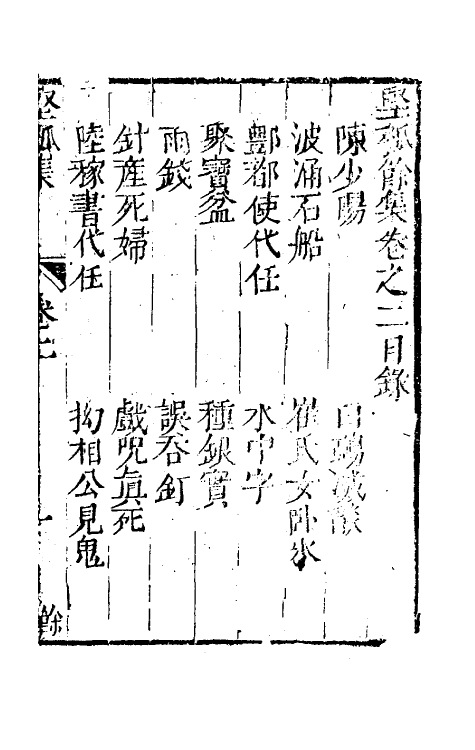 堅瓠餘集卷之二目錄
陳少陽
波涌石船 崔氏女臥冰
酆都使代任 水中字
聚寶盆 種銀實
雨錢 誤吞釘
針產死婦 戲呪真死
陸稼書代任 拗相公見鬼
堅瓠集 卷之二 餘